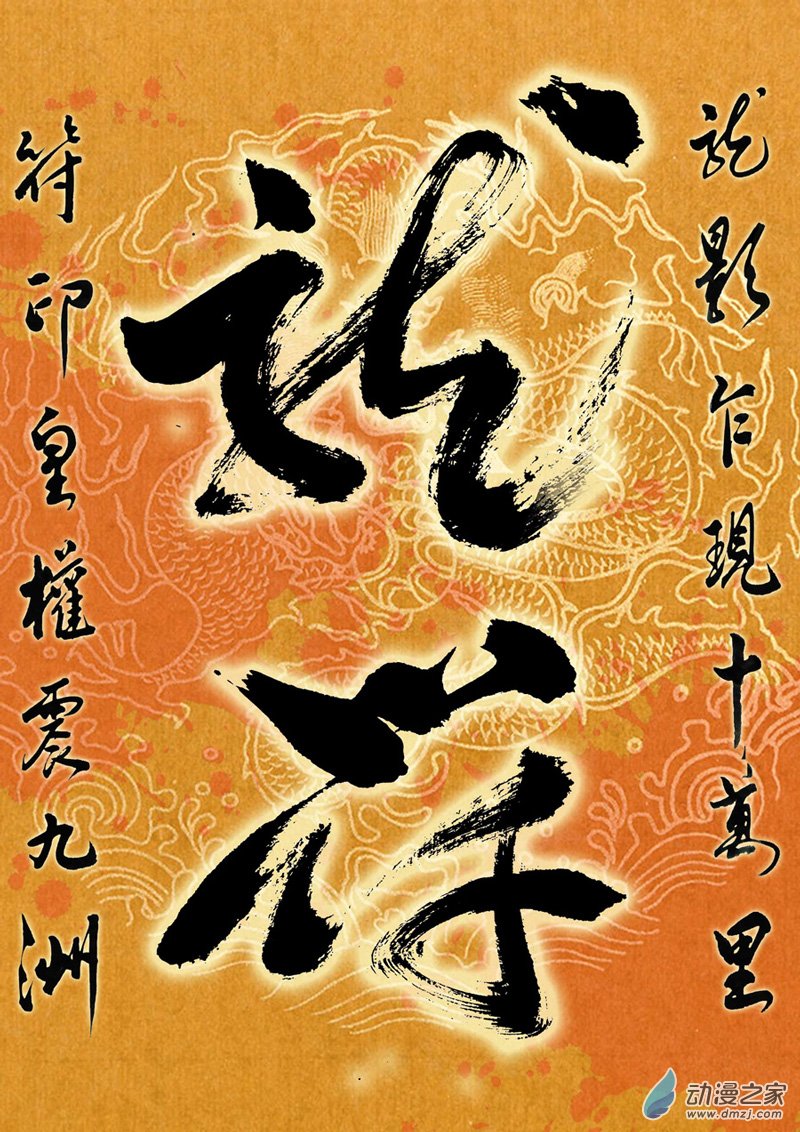 龍影乍現十萬里
龍符
符印皇權震九洲
动漫之家
www.dmzj.com